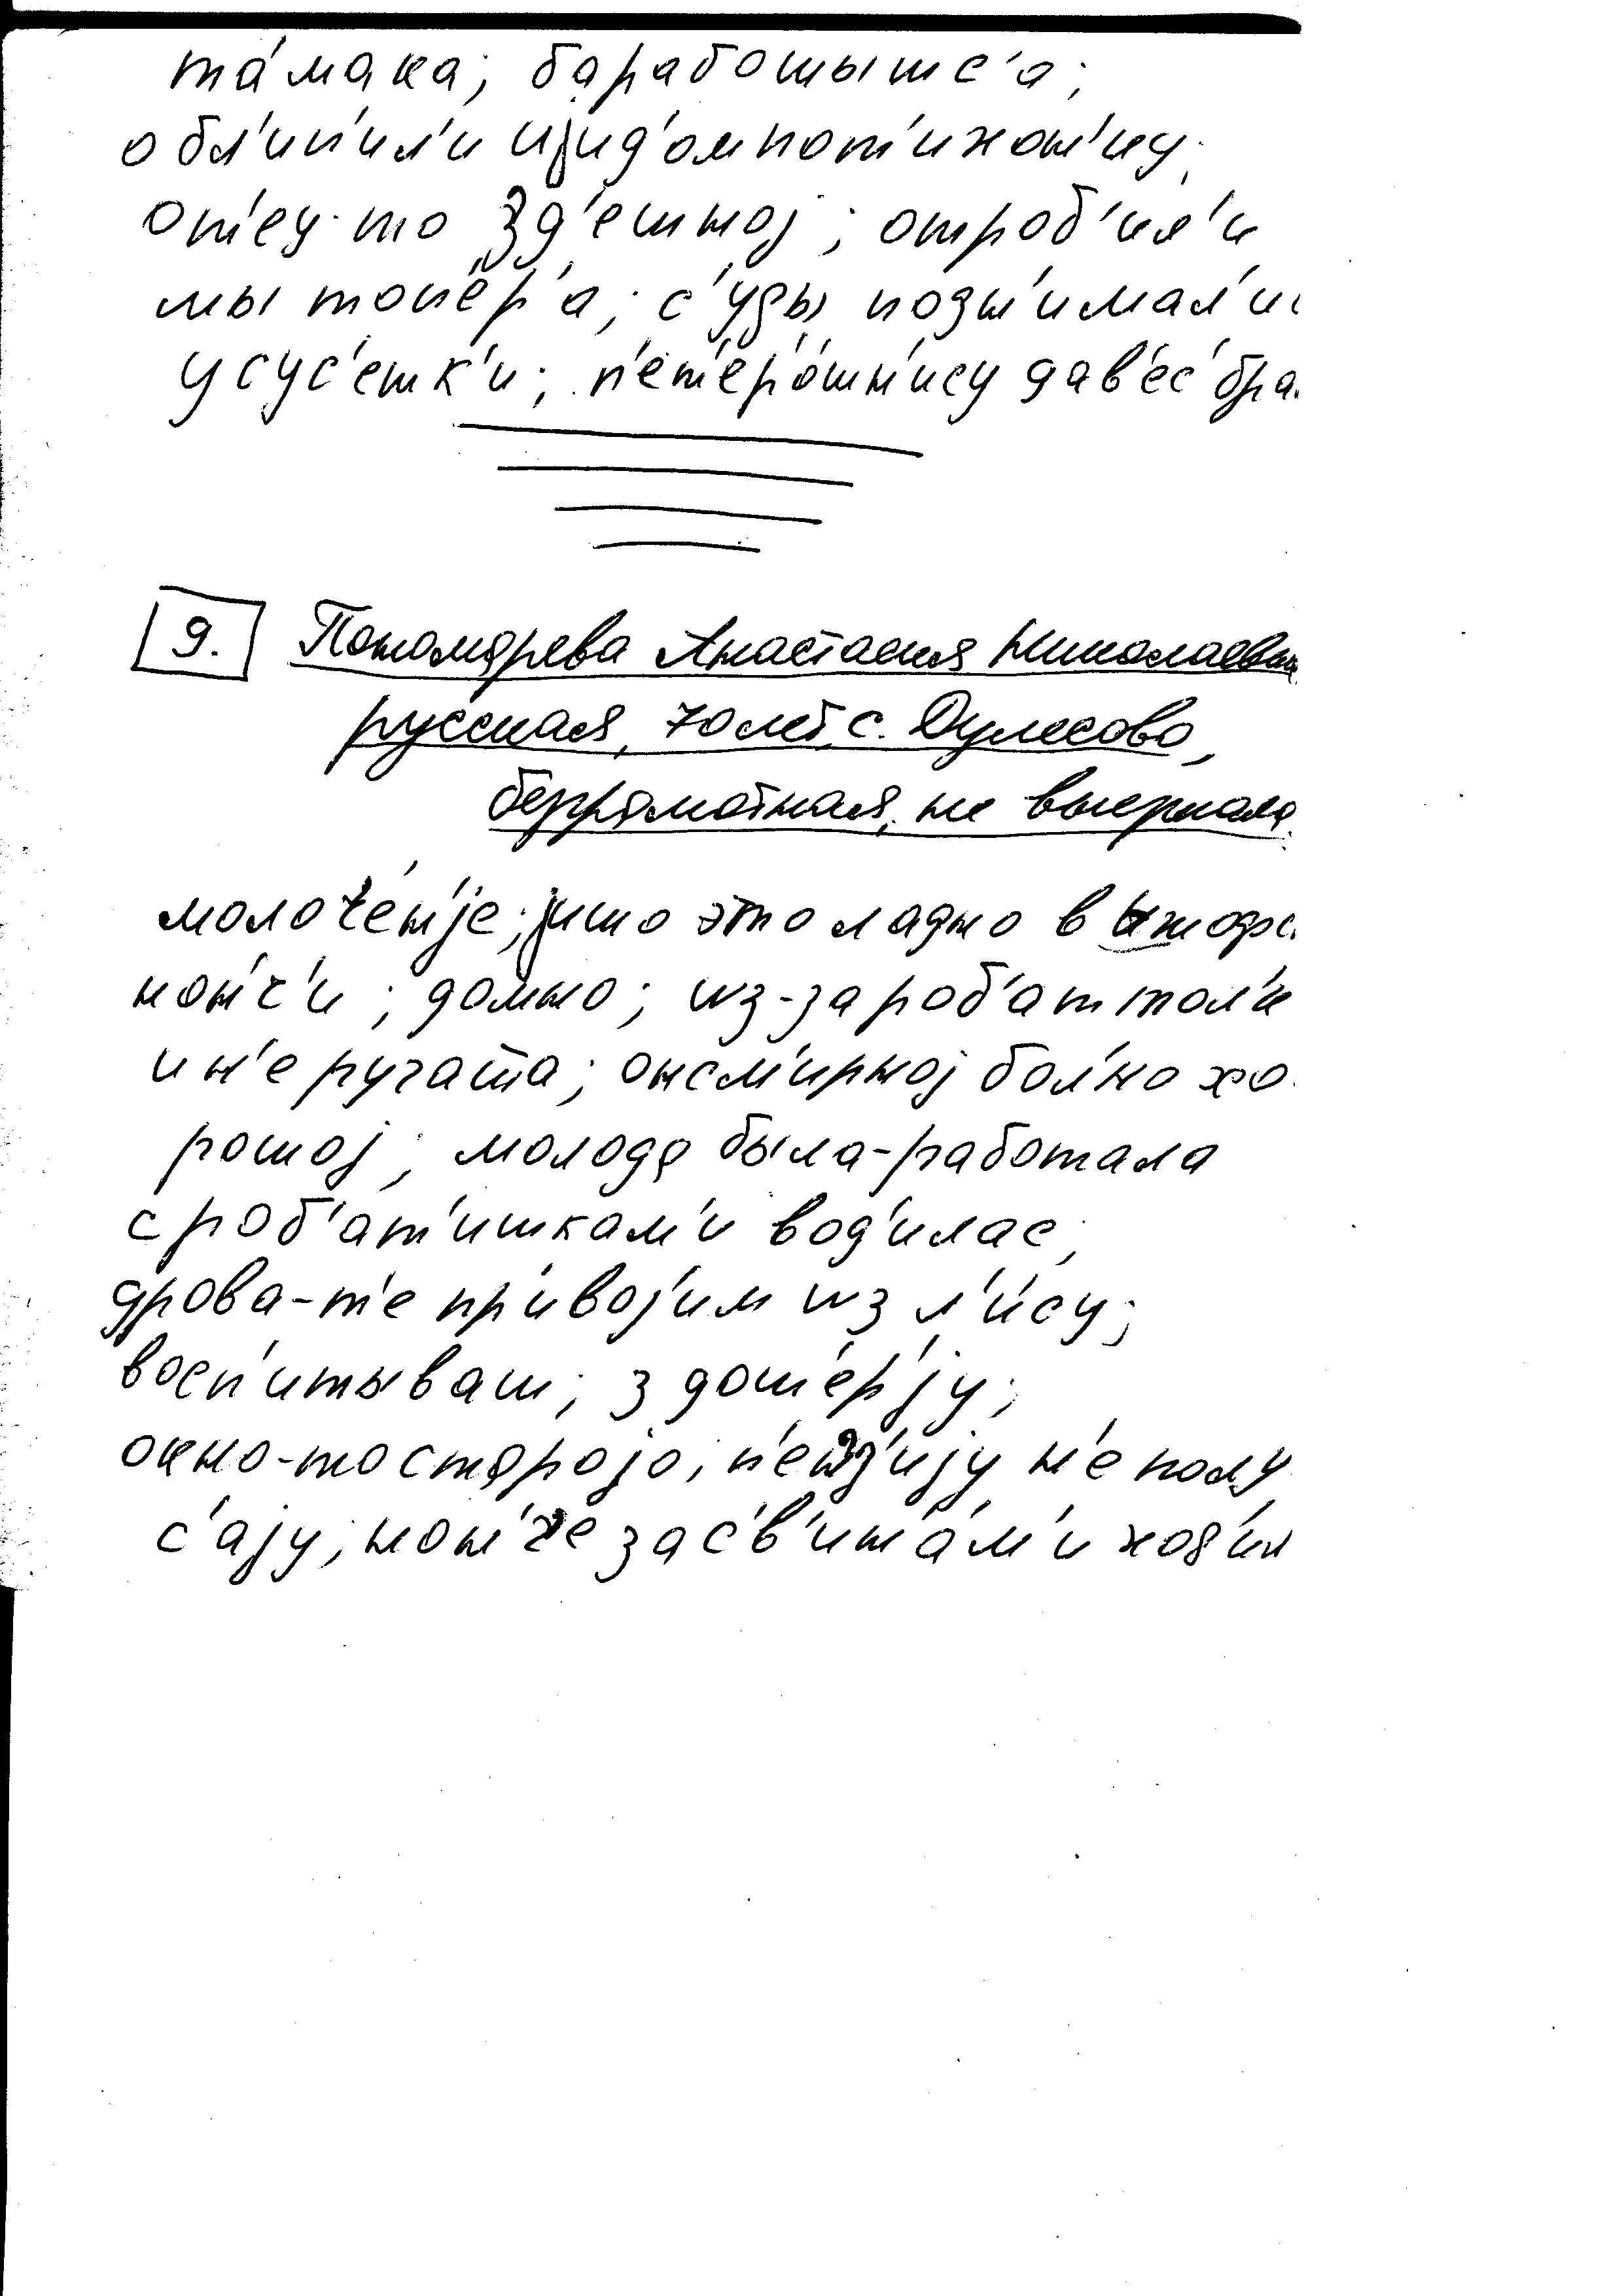 та́мака; баработыт с'а;
обл'ип'ил'и и јид'ом пот'ихон'ку;
от'еу-то зд'ешној; отроб'ил'и
мы топ'е́р'а; с'уды подн'имал'ис
у сус'етк'и; п'ет'ер'о́шн'ису дав'ес' бра
9. Пономарева Анастасия Николаевна
русская, 70 лет, с. Дулесово,
безграмотная, не выезжала.
молоч'е́н'је; јишо это ладно в
нон'ч'и; домно; из-за роб'ат тол'и
и н'е ругата; он см'ирној бол'но хо
рошој; молода была-работала
с роб'ат'ишкам'и вод'илас;
дрова-т'е привој'им из л'ису;
восп'итываш; з дот'ер'ју;
окно-то староjо; п'енз'ију н'е полу
с'ају; нон'че за св'ин'а́м'и ход'ил